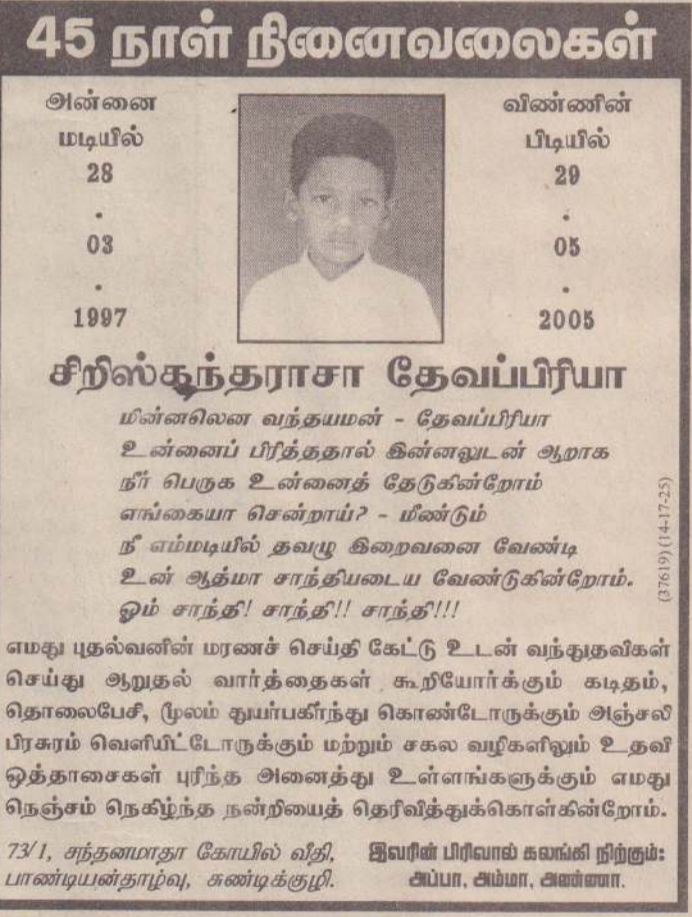 45 நாள் நினைவலைகள்
அன்னை
மடியில்
28
.
03
.
1997
விண்ணின்
பிடியில்
29
.
05
.
2005
சிறிஸ்கந்தராசா தேவப்பிரியா
மின்னலென வந்தயமன் – தேவப்பிரியா
உன்னைப் பிரித்ததால் இன்னலுடன் ஆறாக
நீர் பெருக உன்னைத் தேடுகின்றோம்
எங்கையா சென்றாய்? – மீண்டும்
நீ எம்மடியில் தவழு இறைவனை வேண்டி
உன் ஆத்மா சாந்தியடைய வேண்டுகின்றோம்.
ஓம் சாந்தி! சாந்தி!! சாந்தி!!!
(37619) (14-17-25)
எமது புதல்வனின் மரணச் செய்தி கேட்டு உடன் வந்துதவிகள்
செய்து ஆறுதல் வார்த்தைகள் கூறியோர்க்கும் கடிதம்,
தொலைபேசி, மூலம் துயர்பகிர்ந்து கொண்டோருக்கும் அஞ்சலி
பிரசுரம் வெளியிட்டோருக்கும் மற்றும் சகல வழிகளிலும் உதவி
ஒத்தாசைகள் புரிந்த அனைத்து உள்ளங்களுக்கும் எமது
நெஞ்சம் நெகிழ்ந்த நன்றியைத் தெரிவித்துக்கொள்கின்றோம்.
73/1, சந்தனமாதா கோயில் வீதி,
பாண்டியன்தாழ்வு, சுண்டிக்குழி.
இவரின் பிரிவால் கலங்கி நிற்கும்:
அப்பா, அம்மா, அண்ணா.